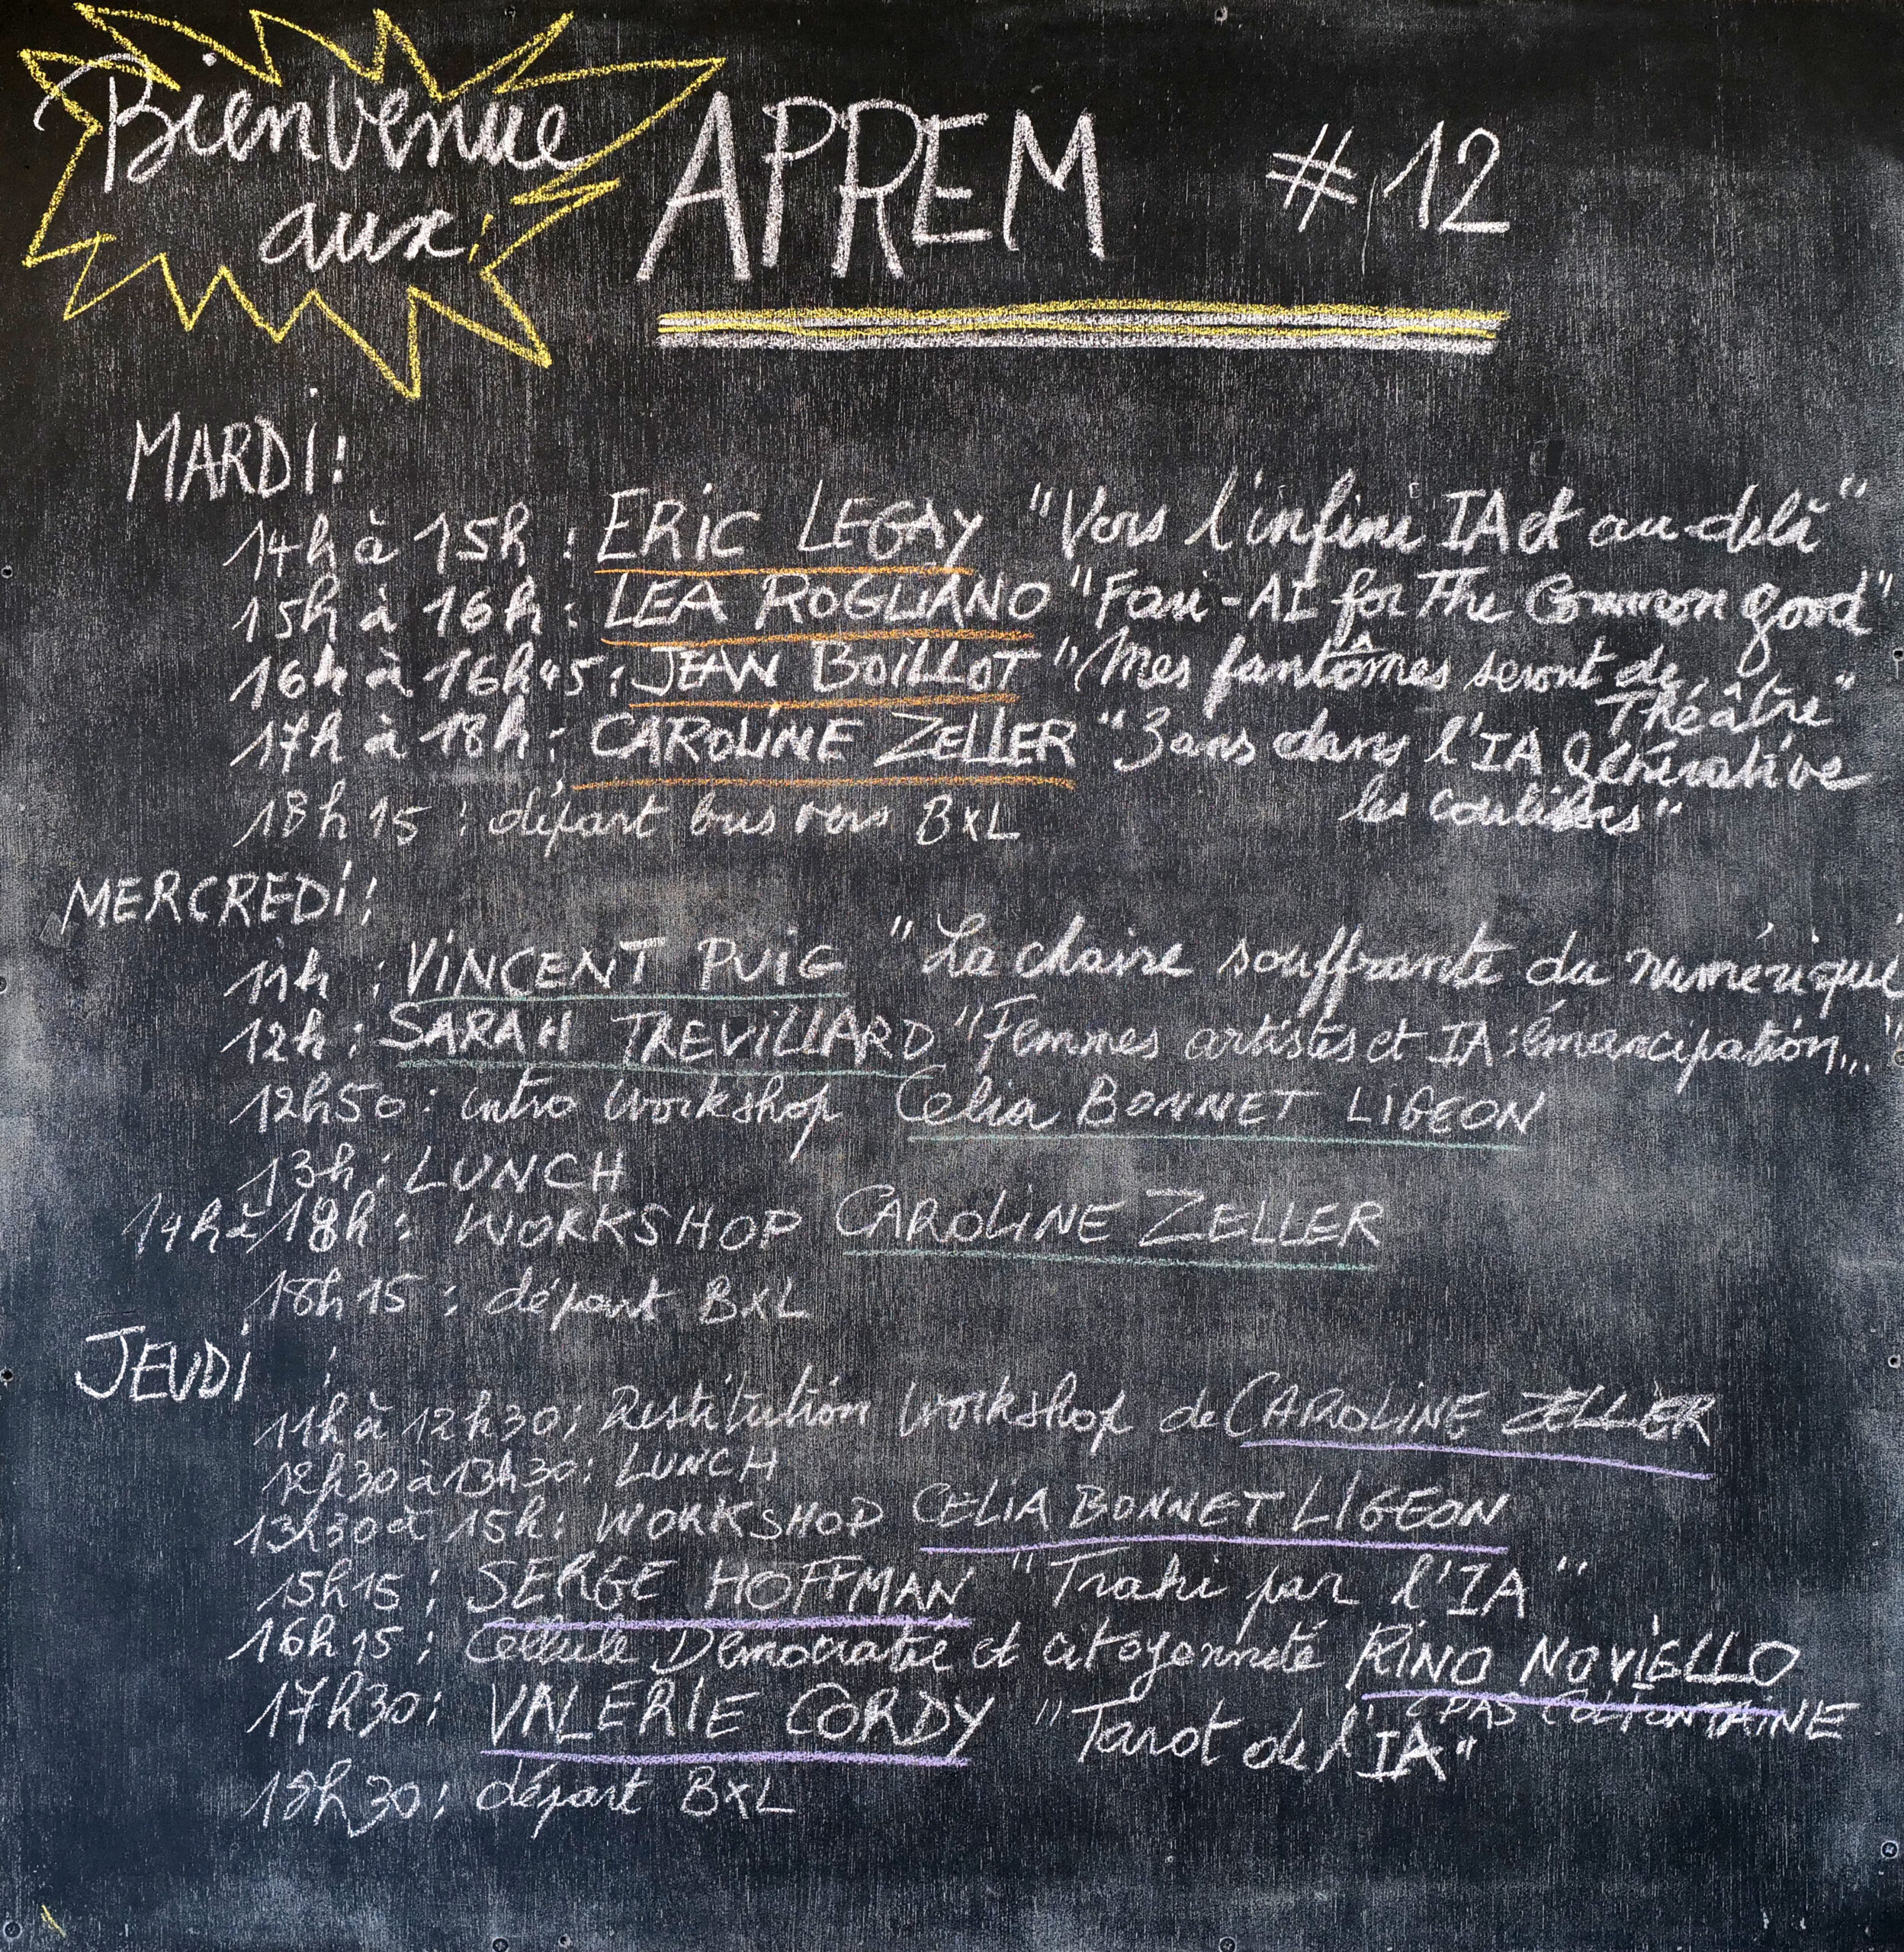 Bienvenue
aux
APREM #12
MARDI :
14h à 15h : ERIC LEGAY "Vers l'infini IA et au-delà"
15h à 16h : LEA ROGLIANO "Fari-AI for The Common good"
16h à 16h45 : JEAN BOILLOT "Mes fantômes seront de
Théâtre"
17h à 18h : CAROLINE ZELLER "3 ans dans l'IA générative
les coulisses"
18h15 : départ bus vers BXL
MERCREDI :
11h : VINCENT PUIG "La chaire souffrante du numérique
12h : SARAH TREVILLARD "Femmes artistes et IA : émancipation..."
12h50 : intro workshop Celia BONNET LIGEON
13h : LUNCH
14h à 18h : WORKSHOP CAROLINE ZELLER
18h15 : départ BXL
JEUDI :
11h à 12h30 : Restitution Workshop de CAROLINE ZELLER
12h30 à 13h30 : LUNCH
13h30 à 15h : WORKSHOP CELIA BONNET LIGEON
15h15 : SERGE HOFFMAN "Trahi par l'IA"
16h15 : Cellule Démocratie et citoyenneté RINO NOVIELLO
CPAS COLFONTAINE
17h30 : VALERIE CORDY "Tarot de l'IA"
18h30 : départ BXL